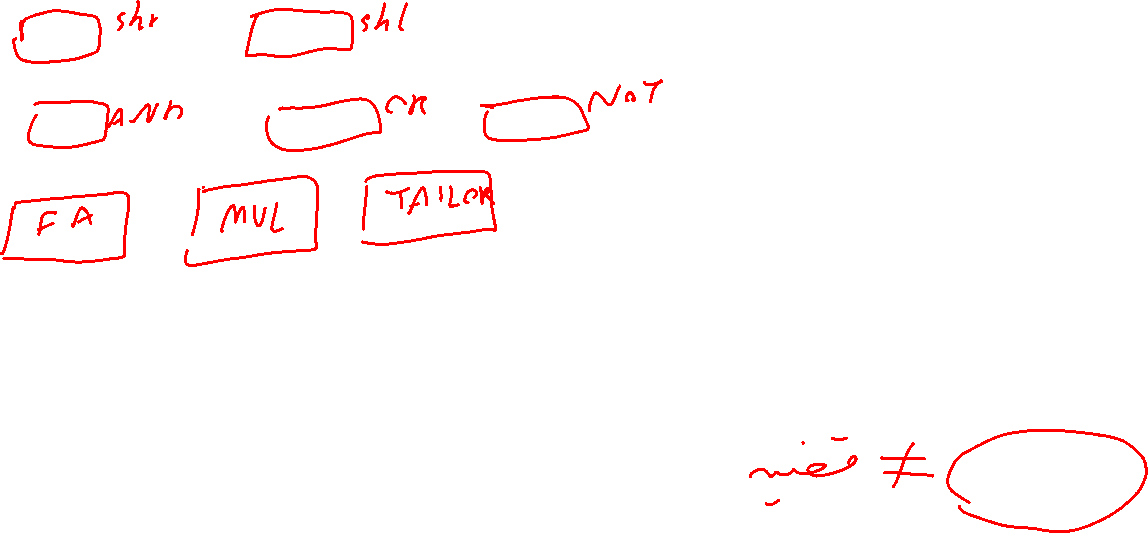 shr shl
AND OR NOT
FA MUL TAILOR
≠